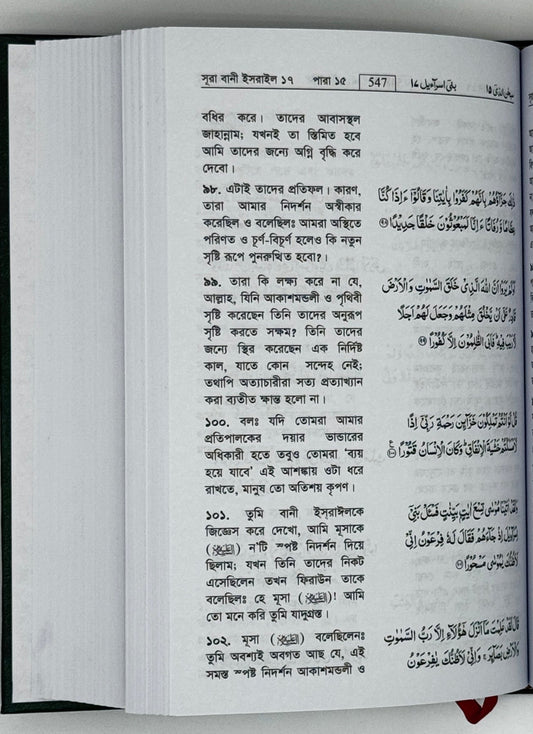 সূরা বানী ইসরাঈল ১৭ পারা ১৫ 547 بنى اسرآءيل ١٧ سبحن الذى ١٥
বধির করে। তাদের আবাসস্থল
জাহান্নাম; যখনই তা স্তিমিত হবে
আমি তাদের জন্যে অগ্নি বৃদ্ধি করে
দেবো।
৯৮. এটাই তাদের প্রতিফল। কারণ,
তারা আমার নিদর্শন অস্বীকার
করেছিল ও বলেছিলঃ আমরা অস্থিতে
পরিণত ও চূর্ণ-বিচূর্ণ হলেও কি নতুন
সৃষ্টি রূপে পুনরুত্থিত হবো?।
ذٰلِكَ جَزَآؤُهُمْ بِاَنَّهُمْ كَفَرُوْا بِاٰيٰتِنَا وَقَالُوْٓا ءَاِذَا كُنَّا
عِظَامًا وَّرُفَاتًا ءَاِنَّا لَمَبْعُوْثُوْنَ خَلْقًا جَدِيْدًا ۝٩٨
৯৯. তারা কি লক্ষ্য করে না যে,
আল্লাহ, যিনি আকাশমন্ডলী ও পৃথিবী
সৃষ্টি করেছেন তিনি তাদের অনুরূপ
সৃষ্টি করতে সক্ষম? তিনি তাদের
জন্যে স্থির করেছেন এক নির্দিষ্ট
কাল, যাতে কোন সন্দেহ নেই;
তথাপি অত্যাচারীরা সত্য প্রত্যাখ্যান
করা ব্যতীত ক্ষান্ত হলো না।
اَوَلَمْ يَرَوْا اَنَّ اللّٰهَ الَّذِيْ خَلَقَ السَّمٰوٰتِ وَالْاَرْضَ
قَادِرٌ عَلٰٓى اَنْ يَّخْلُقَ مِثْلَهُمْ وَجَعَلَ لَهُمْ اَجَلًا
لَّا رَيْبَ فِيْهِ فَاَبَى الظّٰلِمُوْنَ اِلَّا كُفُوْرًا ۝٩٩
১০০. বলঃ যদি তোমরা আমার
প্রতিপালকের দয়ার ভান্ডারের
অধিকারী হতে তবুও তোমরা 'ব্যয়
হয়ে যাবে' এই আশঙ্কায় ওটা ধরে
রাখতে, মানুষ তো অতিশয় কৃপণ।
قُلْ لَّوْ اَنْتُمْ تَمْلِكُوْنَ خَزَآئِنَ رَحْمَةِ رَبِّيْٓ اِذًا
لَّاَمْسَكْتُمْ خَشْيَةَ الْاِنْفَاقِ ؕ وَكَانَ الْاِنْسَانُ قَتُوْرًا ۝١٠٠
১০১. তুমি বানী ইসরাঈলকে
জিজ্ঞেস করে দেখো, আমি মূসাকে
() ন'টি স্পষ্ট নিদর্শন দিয়ে
ছিলাম; যখন তিনি তাদের নিকট
এসেছিলেন তখন ফিরাউন তাকে
বলেছিলঃ হে মূসা ()! আমি
তো মনে করি তুমি যাদুগ্রস্ত।
وَلَقَدْ اٰتَيْنَا مُوْسٰى تِسْعَ اٰيٰتٍۭ بَيِّنٰتٍ فَسْـَٔلْ بَنِيْٓ
اِسْرَآءِيْلَ اِذْ جَآءَهُمْ فَقَالَ لَهٗ فِرْعَوْنُ اِنِّيْ
لَاَظُنُّكَ يٰمُوْسٰى مَسْحُوْرًا ۝١٠١
১০২. মূসা () বলেছিলেনঃ
তুমি অবশ্যই অবগত আছ যে, এই
সমস্ত স্পষ্ট নিদর্শন আকাশমন্ডলী ও
قَالَ لَقَدْ عَلِمْتَ مَآ اَنْزَلَ هٰٓؤُلَآءِ اِلَّا رَبُّ السَّمٰوٰتِ
وَالْاَرْضِ بَصَآئِرَ ۚ وَاِنِّيْ لَاَظُنُّكَ يٰفِرْعَوْنُ